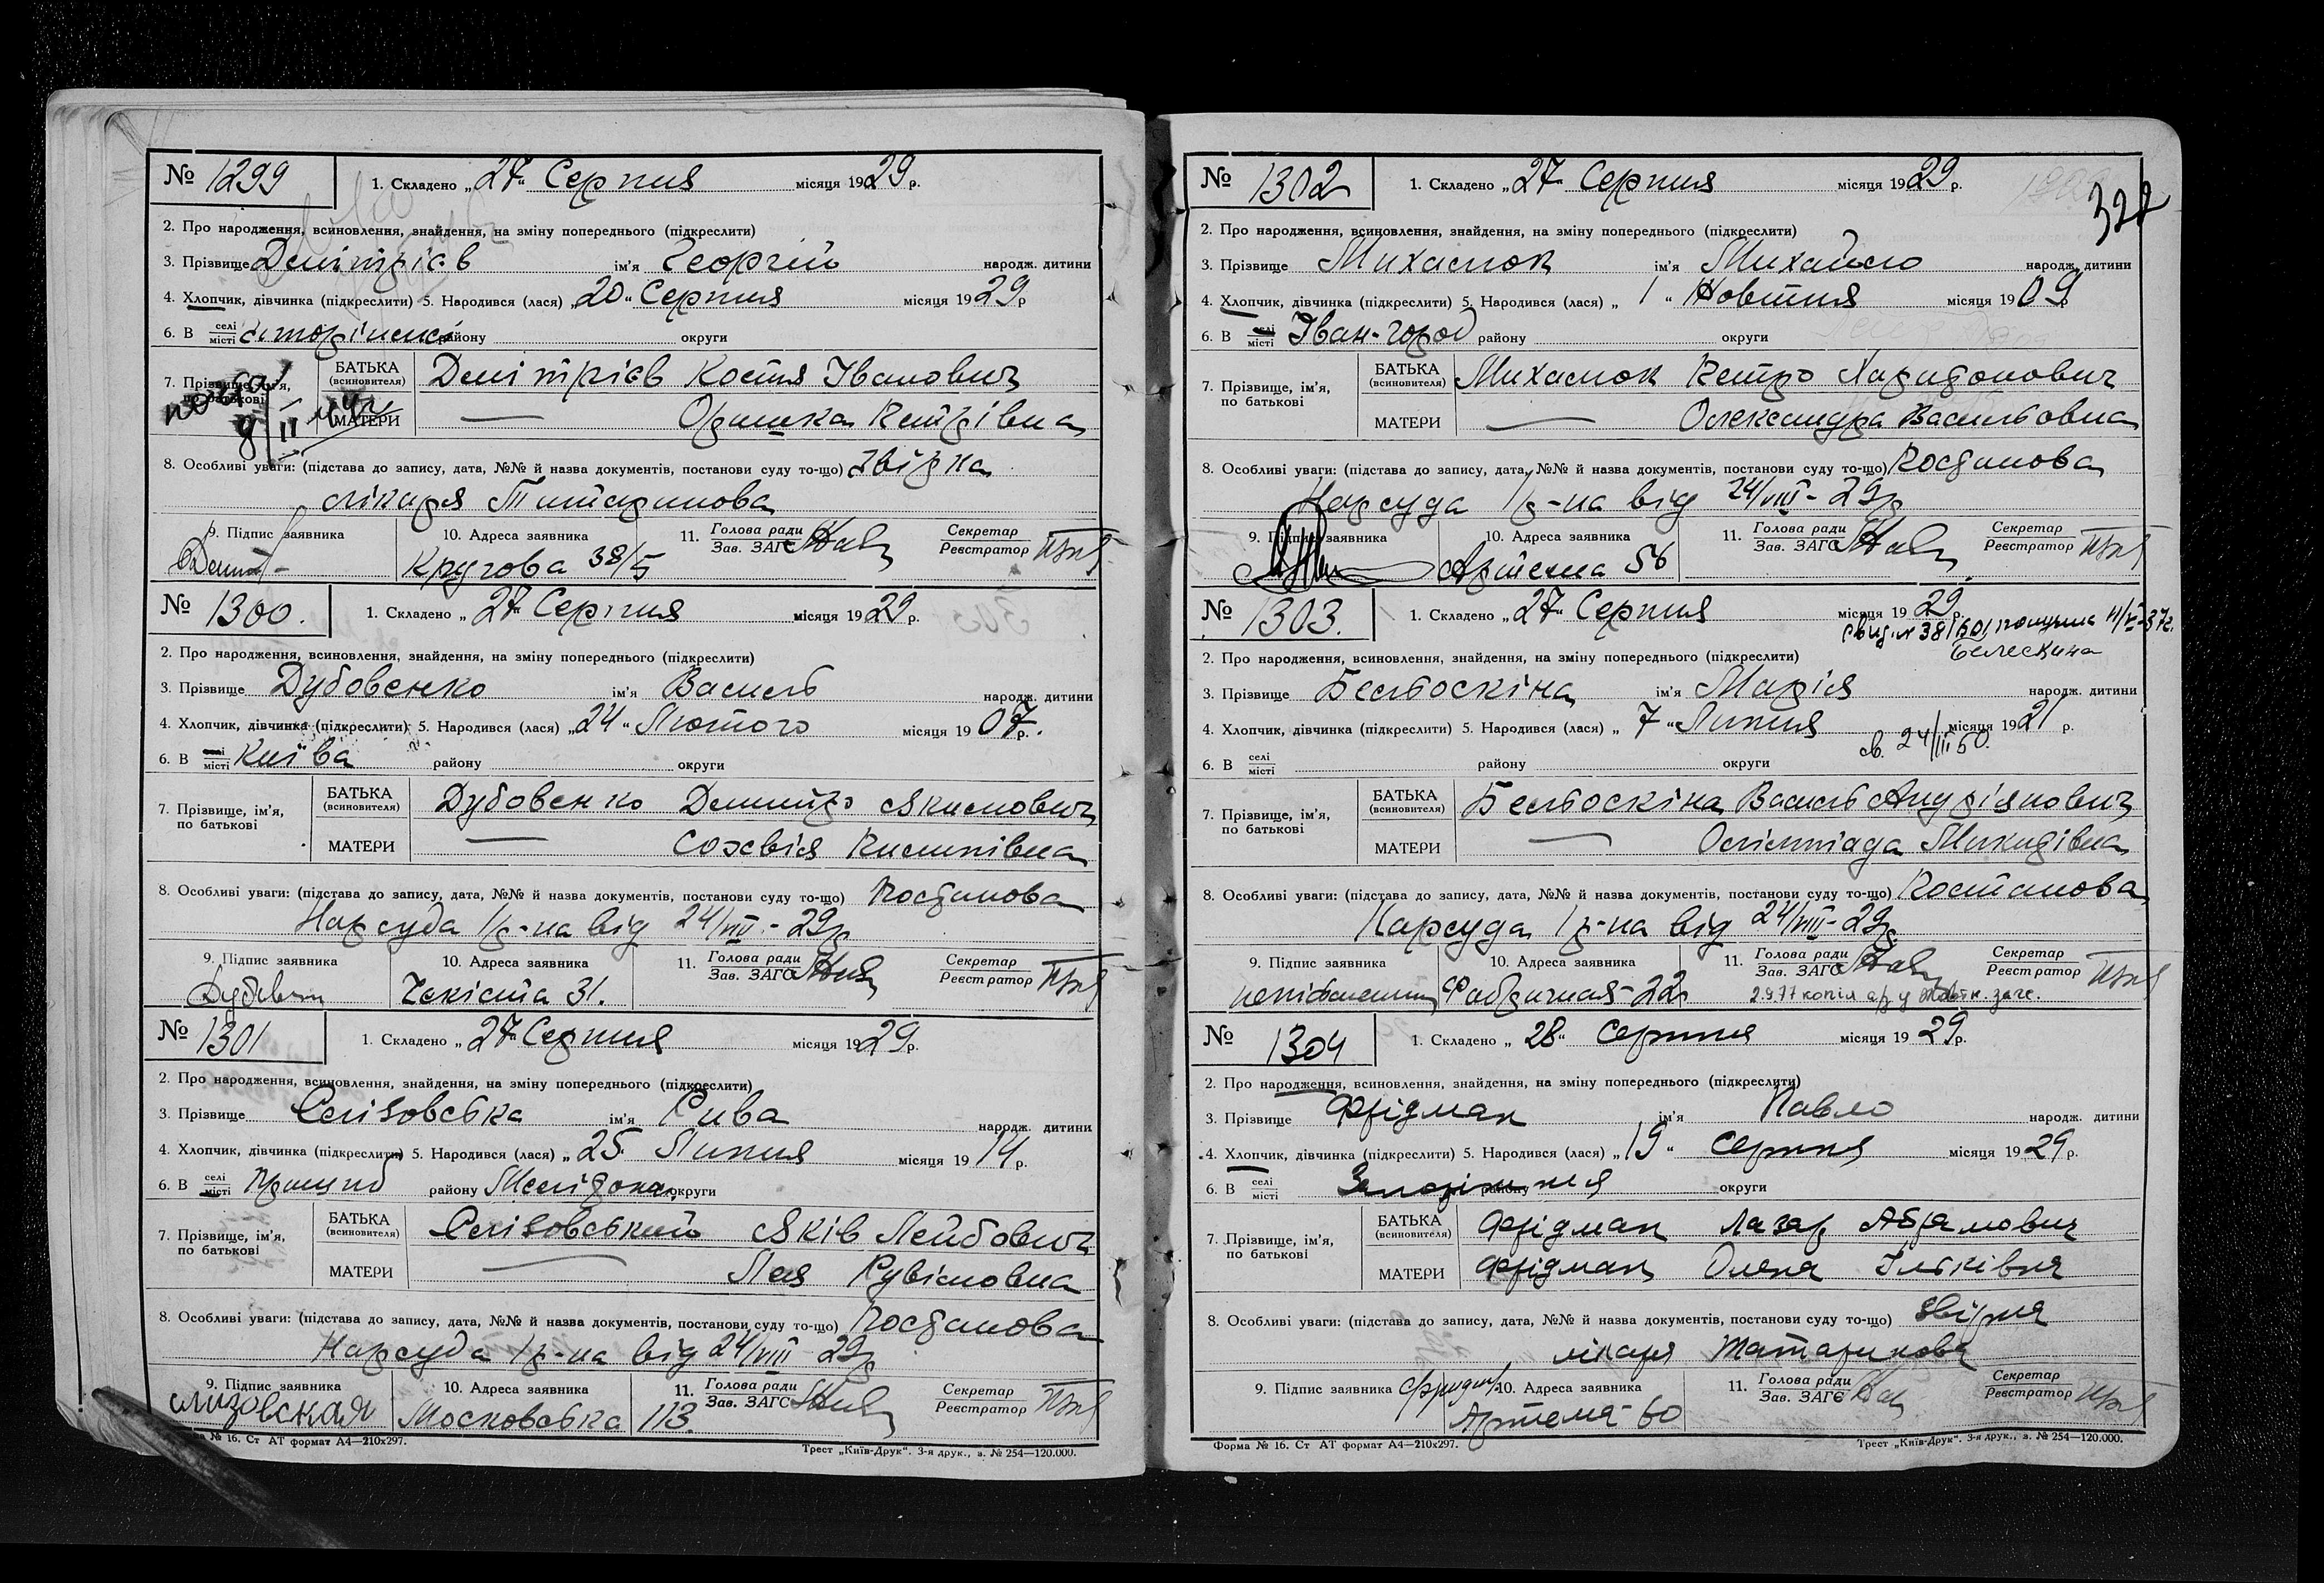 № 1299
1. Складено „27“ Серпня місяця 1929 р.
2. Про народження, всиновлення, знайдення, на зміну попереднього (підкреслити)
3. Прізвище Демітрієв ім'я Георгій народж. дитини
4. Хлопчик, дівчинка (підкреслити) 5. Народився (лася) „20“ Серпня місяця 1929 р
6. В селі місті району округи
7. Прізвище, ім'я, по батькові
БАТЬКА (всиновителя) Демітрієв Костя Іванович
МАТЕРИ — Оришка Петрівна
8. Особливі уваги: (підстава до запису, дата, №№ й назва документів, постанови суду то-що) звірка
лікаря Титаринова
9. Підпис заявника 10. Адреса заявника 11. Голова ради Зав. ЗАГС Секретар Реєстратор
Кругова 38/5
№ 1300.
1. Складено „27“ Серпня місяця 1929 р.
2. Про народження, всиновлення, знайдення, на зміну попереднього (підкреслити)
3. Прізвище Дубовенко ім'я Василь народж. дитини
4. Хлопчик, дівчинка (підкреслити) 5. Народився (лася) „24“ Лютого місяця 1907 р.
6. В селі місті Київа району округи
7. Прізвище, ім'я, по батькові
БАТЬКА (всиновителя) Дубовенко Дмитро Якимович
МАТЕРИ — Софвія Пилипівна
8. Особливі уваги: (підстава до запису, дата, №№ й назва документів, постанови суду то-що) Постанова
Нарсуда 1 р-на від 24/VIII - 29р
9. Підпис заявника 10. Адреса заявника 11. Голова ради Зав. ЗАГС Секретар Реєстратор
Чекіста 31.
№ 1301
1. Складено „27“ Серпня місяця 1929 р.
2. Про народження, всиновлення, знайдення, на зміну попереднього (підкреслити)
3. Прізвище Слізовська ім'я Рива народж. дитини
4. Хлопчик, дівчинка (підкреслити) 5. Народився (лася) „25“ Липня місяця 1914 р.
6. В селі місті Пришиб району округи
7. Прізвище, ім'я, по батькові
БАТЬКА (всиновителя) Слізовський Яків Лейбович
МАТЕРИ — Лея Рувімовна
8. Особливі уваги: (підстава до запису, дата, №№ й назва документів, постанови суду то-що) Постанова
Нарсуда 1 р-на від 24/VIII 29р
9. Підпис заявника 10. Адреса заявника 11. Голова ради Зав. ЗАГС Секретар Реєстратор
слизовская Московська 113.
№ 16. Ст АТ формат А4—210х297. Трест „Київ-Друк“. 3-я друк., з. № 254—120.000.
№ 1302
1. Складено „27“ Серпня місяця 1929 р.
2. Про народження, всиновлення, знайдення, на зміну попереднього (підкреслити)
3. Прізвище Михасюк ім'я Михайло народж. дитини
4. Хлопчик, дівчинка (підкреслити) 5. Народився (лася) „1“ Жовтня місяця 1909 р
6. В селі місті Іван-город району округи
7. Прізвище, ім'я, по батькові
БАТЬКА (всиновителя) Михасюк Петро Харитонович
МАТЕРИ — Олександра Васильовна
8. Особливі уваги: (підстава до запису, дата, №№ й назва документів, постанови суду то-що) Постанова
Нарсуда 1 р-на від 24/VIII - 29р
9. Підпис заявника 10. Адреса заявника 11. Голова ради Зав. ЗАГС Секретар Реєстратор
Артема 56
№ 1303.
1. Складено „27“ Серпня місяця 1929 р.
2. Про народження, всиновлення, знайдення, на зміну попереднього (підкреслити)
3. Прізвище Бельоскіна ім'я Марія народж. дитини
4. Хлопчик, дівчинка (підкреслити) 5. Народився (лася) „7“ Липня місяця 1921 р.
св. 24/III 50.
6. В селі місті району округи
7. Прізвище, ім'я, по батькові
БАТЬКА (всиновителя) Бельоскіна Василь Андріянович
МАТЕРИ — Олімпіада Микитівна
8. Особливі уваги: (підстава до запису, дата, №№ й назва документів, постанови суду то-що) Постанова
Нарсуда 1 р-на від 24/VIII - 29р.
9. Підпис заявника 10. Адреса заявника 11. Голова ради Зав. ЗАГС Секретар Реєстратор
Фабричная - 22
№ 1304
1. Складено „28“ серпня місяця 1929 р.
2. Про народження, всиновлення, знайдення, на зміну попереднього (підкреслити)
3. Прізвище Фрідман ім'я Павло народж. дитини
4. Хлопчик, дівчинка (підкреслити) 5. Народився (лася) „19“ серпня місяця 1929 р.
6. В селі місті Запоріжжя району округи
7. Прізвище, ім'я, по батькові
БАТЬКА (всиновителя) Фрідман Лазар Абрамович
МАТЕРИ Фрідман Олена Ільківна
8. Особливі уваги: (підстава до запису, дата, №№ й назва документів, постанови суду то-що) звірня
лікаря Татаринова
9. Підпис заявника 10. Адреса заявника 11. Голова ради Зав. ЗАГС Секретар Реєстратор
Артема - 60
Форма № 16. Ст АТ формат А4—210х297. Трест „Київ-Друк“. 3-я друк., з. № 254—120.000.